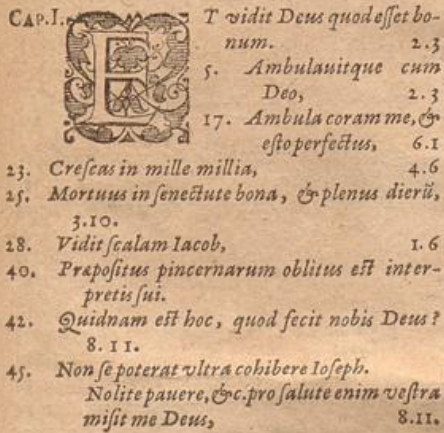 CAP.I. ET vidit Deus quod eſſet bo-
num. 2.3
5. Ambulauitque cum
Deo, 2.3
17. Ambula coram me, &
eſto perfectus, 6.1
23. Creſcas in mille millia, 4.6
25. Mortuus in ſenectute bona, & plenus dierū,
3.10.
28. Vidit ſcalam Iacob, 1.6
40. Præpoſitus pincernarum oblitus eſt inter-
pretis ſui.
42. Quidnam eſt hoc, quod fecit nobis Deus?
8.11.
45. Non ſe poterat vltra cohibere Ioſeph.
Nolite pauere, &c. pro ſalute enim veſtra
miſit me Deus, 8.11.